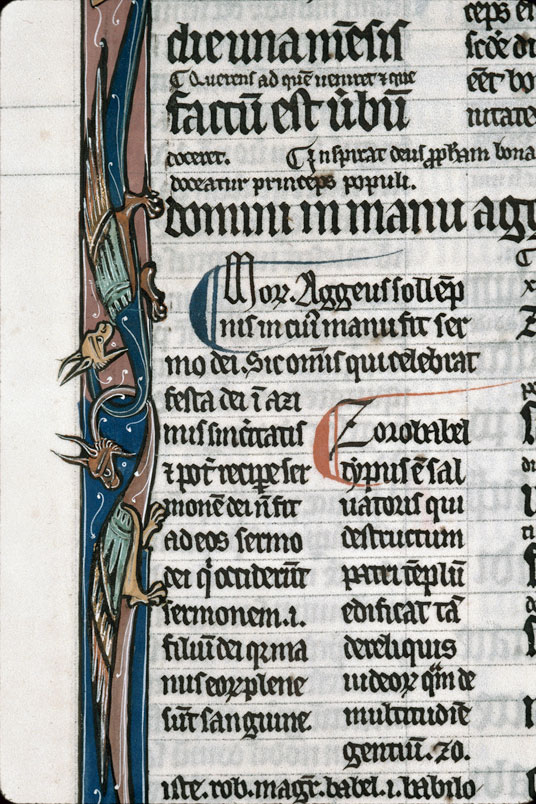 die una mēsis
Querens ad quē veniret et que
factū est ūbū
doceret. Inspirat deus ꝓpham bona
doceatur princeps populi.
domini in manu agg
Mor. Aggeus sollēp
nis in cuiꝰ manu fit ser
mo dei. Sic omīs qui celebrat
festa dei ī azi
mis sinceritatis
⁊ pot̄ recipe ser
monē dei n̄ fit
ad eos sermo
dei q̇ occiderūt
sermonem .i.
filiū dei qꝝ ma
nus eoꝝ plene
sūt sanguine
Zorobabel
typus ē sal
uatoris qui
destructum
patri tēplū
edificat tā
dereliquis
iudeoꝝ qm̄ de
multitudīe
gentiū. zo.
iste. rob. magr̄. babel .i. babilo
ceps
scōꝛ
eēt bo
nitate